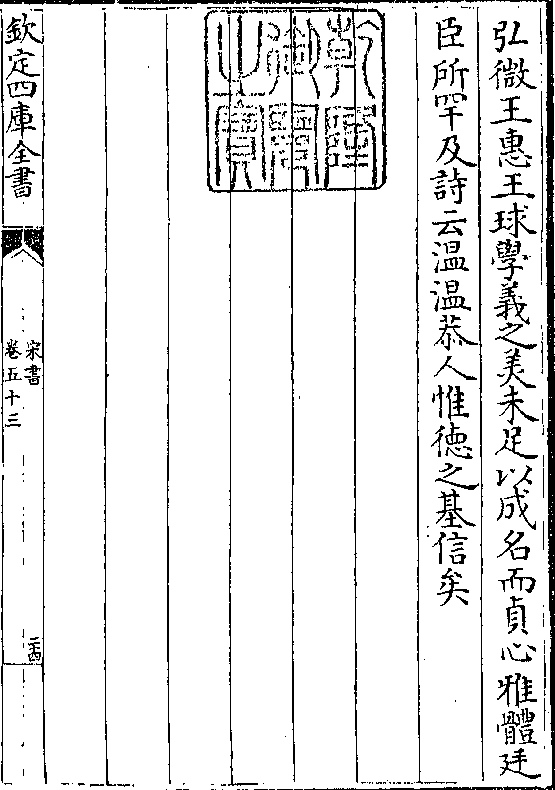 弘微王惠王球學義之美未足以成名而貞心雅體廷
臣所罕及詩云温温恭人惟徳之基信矣
乾隆
御覽
之寶
欽定四庫全書
宋書
卷五十三
二四